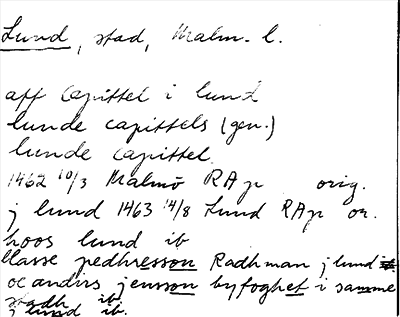 Lund, stad, Malm. l.
aff Capittel i lund
lunde capittels (gen.)
lunde capittel
1462 10/3 Malmö RAp orig.
j lund 1463 14/8 Lund RAp or.
hoos lund ib
Classe pedhersson Radhman j lund
oc andirs jensson byfoghet i samme
stadh ib.
j lund ib.